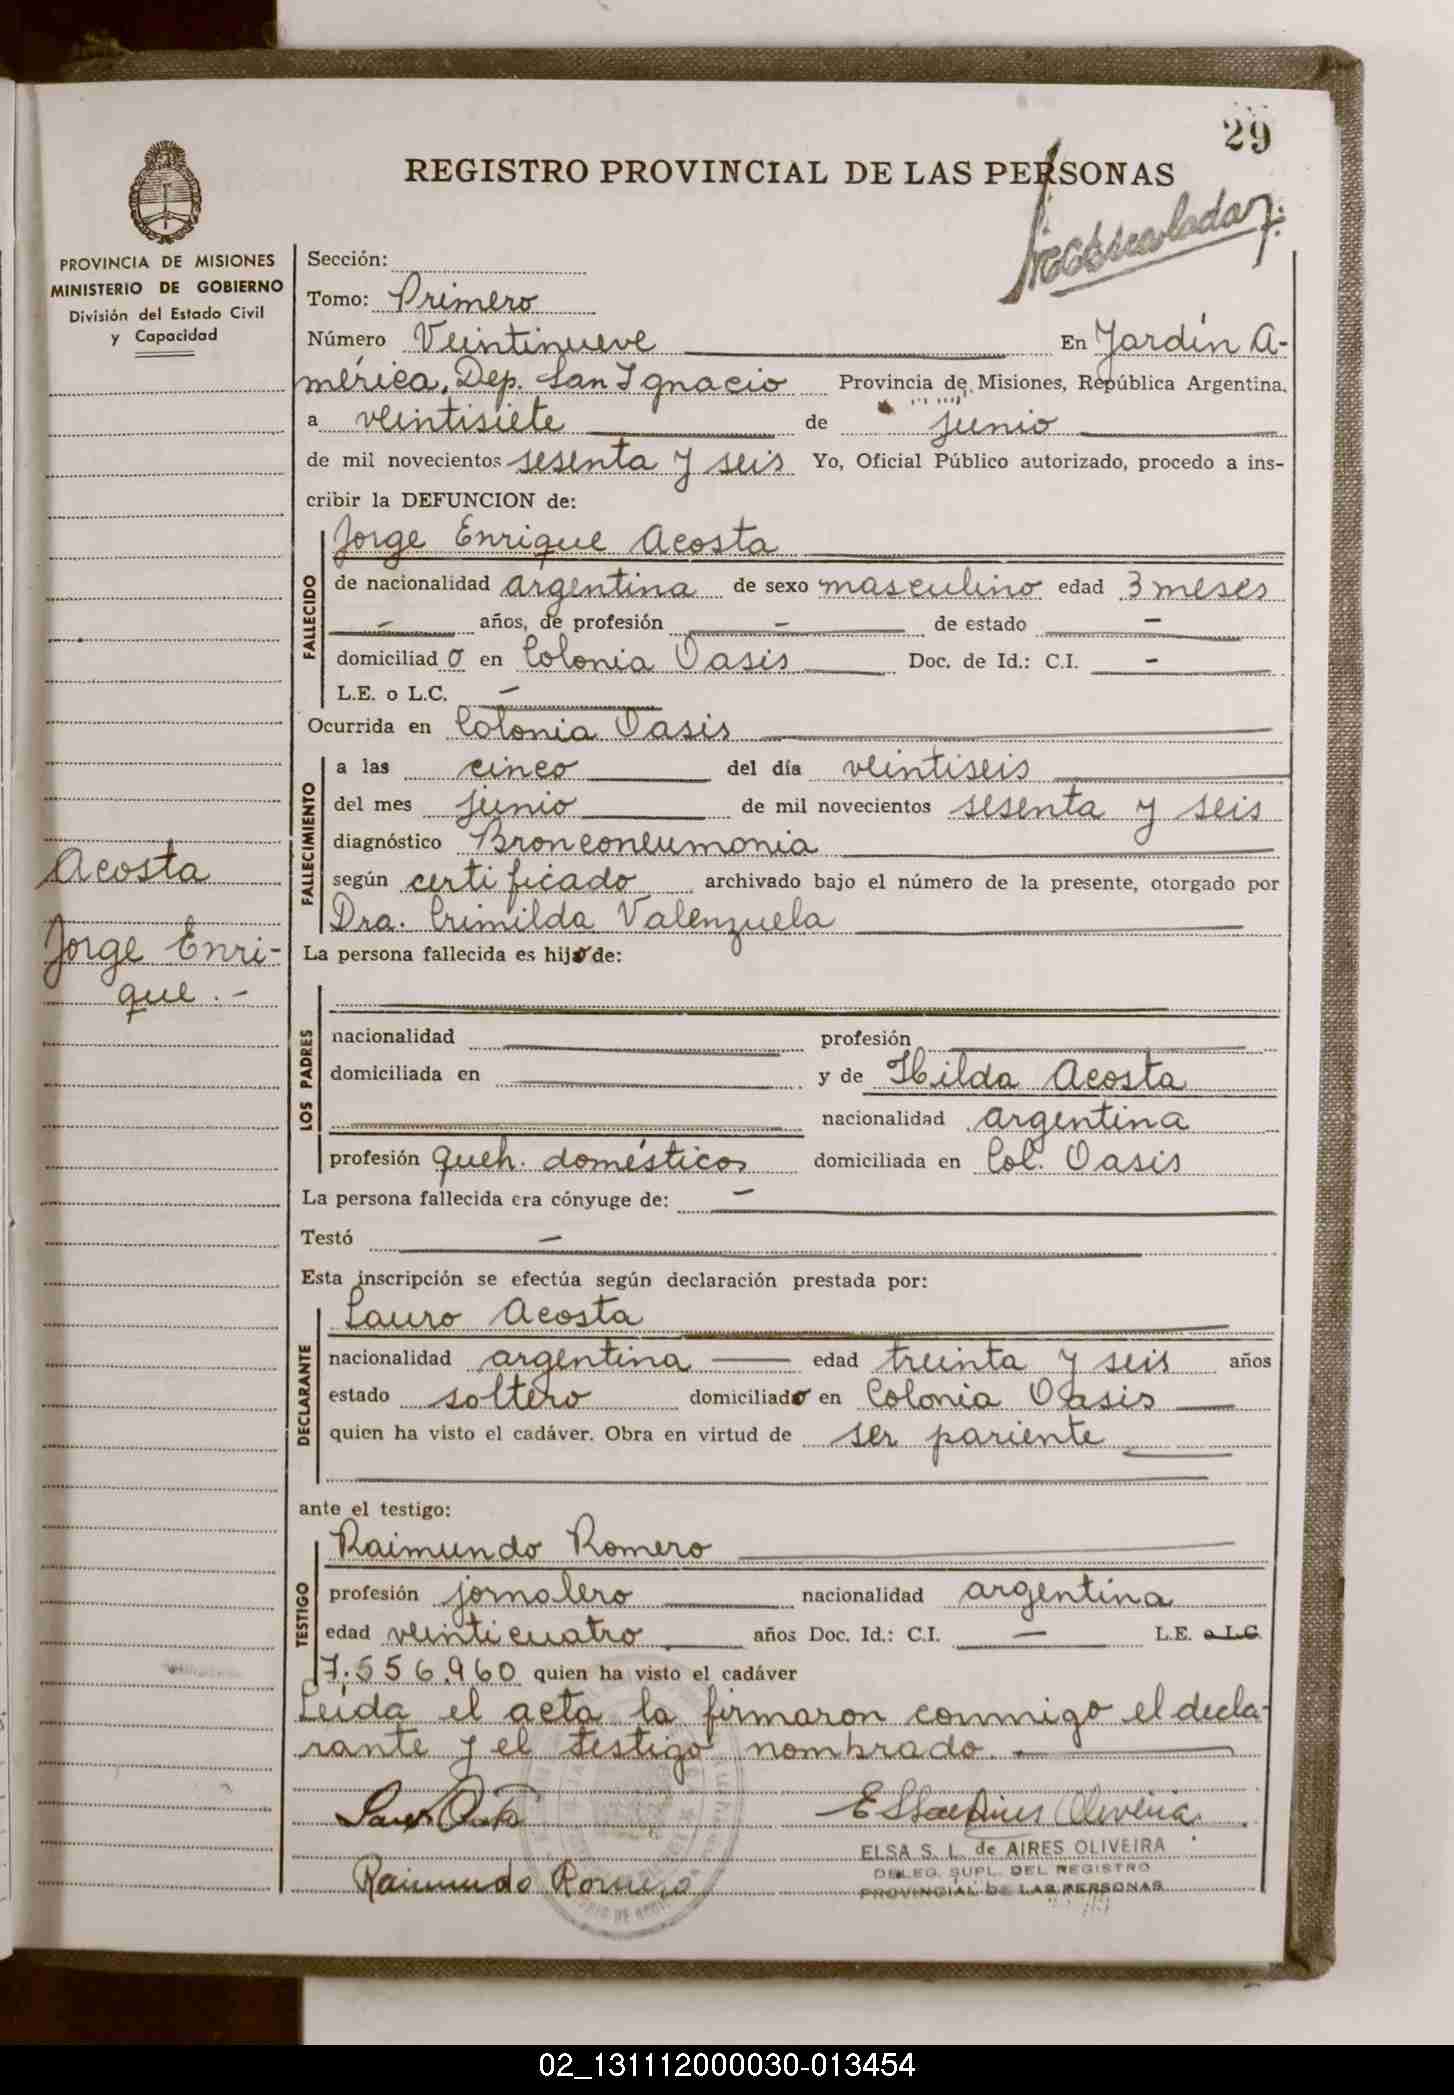 29
REGISTRO PROVINCIAL DE LAS PERSONAS
PROVINCIA DE MISIONES
MINISTERIO DE GOBIERNO
División del Estado Civil
y Capacidad
Sección:
Tomo: Primero
Número Veintinueve En Jardín A-
mérica, Dep. San Ignacio Provincia de Misiones, República Argentina.
a veintisiete de junio
de mil novecientos sesenta y seis Yo, Oficial Público autorizado, procedo a ins-
cribir la DEFUNCION de:
FALLECIDO
Jorge Enrique Acosta
de nacionalidad argentina de sexo masculino edad 3 meses
- años, de profesión - de estado -
domiciliado en Colonia Oasis Doc. de Id.: C.I. -
L.E. o L.C. -
Ocurrida en Colonia Oasis
FALLECIMIENTO
a las cinco del día veintiseis
del mes junio de mil novecientos sesenta y seis
diagnóstico Bronconeumonia
según certificado archivado bajo el número de la presente, otorgado por
Dra. Crimilda Valenzuela
Acosta
Jorge Enri-
que.-
La persona fallecida es hijo de:
LOS PADRES
nacionalidad profesión
domiciliada en y de Hilda Acosta
nacionalidad argentina
profesión queh. domésticos domiciliada en Col. Oasis
La persona fallecida era cónyuge de: -
Testó -
Esta inscripción se efectúa según declaración prestada por:
DECLARANTE
Lauro Acosta
nacionalidad argentina edad treinta y seis años
estado soltero domiciliado en Colonia Oasis
quien ha visto el cadáver. Obra en virtud de ser pariente
ante el testigo:
TESTIGO
Raimundo Romero
profesión jornalero nacionalidad argentina
edad veinticuatro años Doc. Id.: C.I. - L.E. o L.C.
7.556.960 quien ha visto el cadáver
Leída el acta la firmaron conmigo el decla-
rante y el testigo nombrado.-
Oliveira
ELSA S. L. de AIRES OLIVEIRA
DELEG. SUPL. DEL REGISTRO
PROVINCIAL DE LAS PERSONAS
Raimundo Romero
02_131112000030-013454